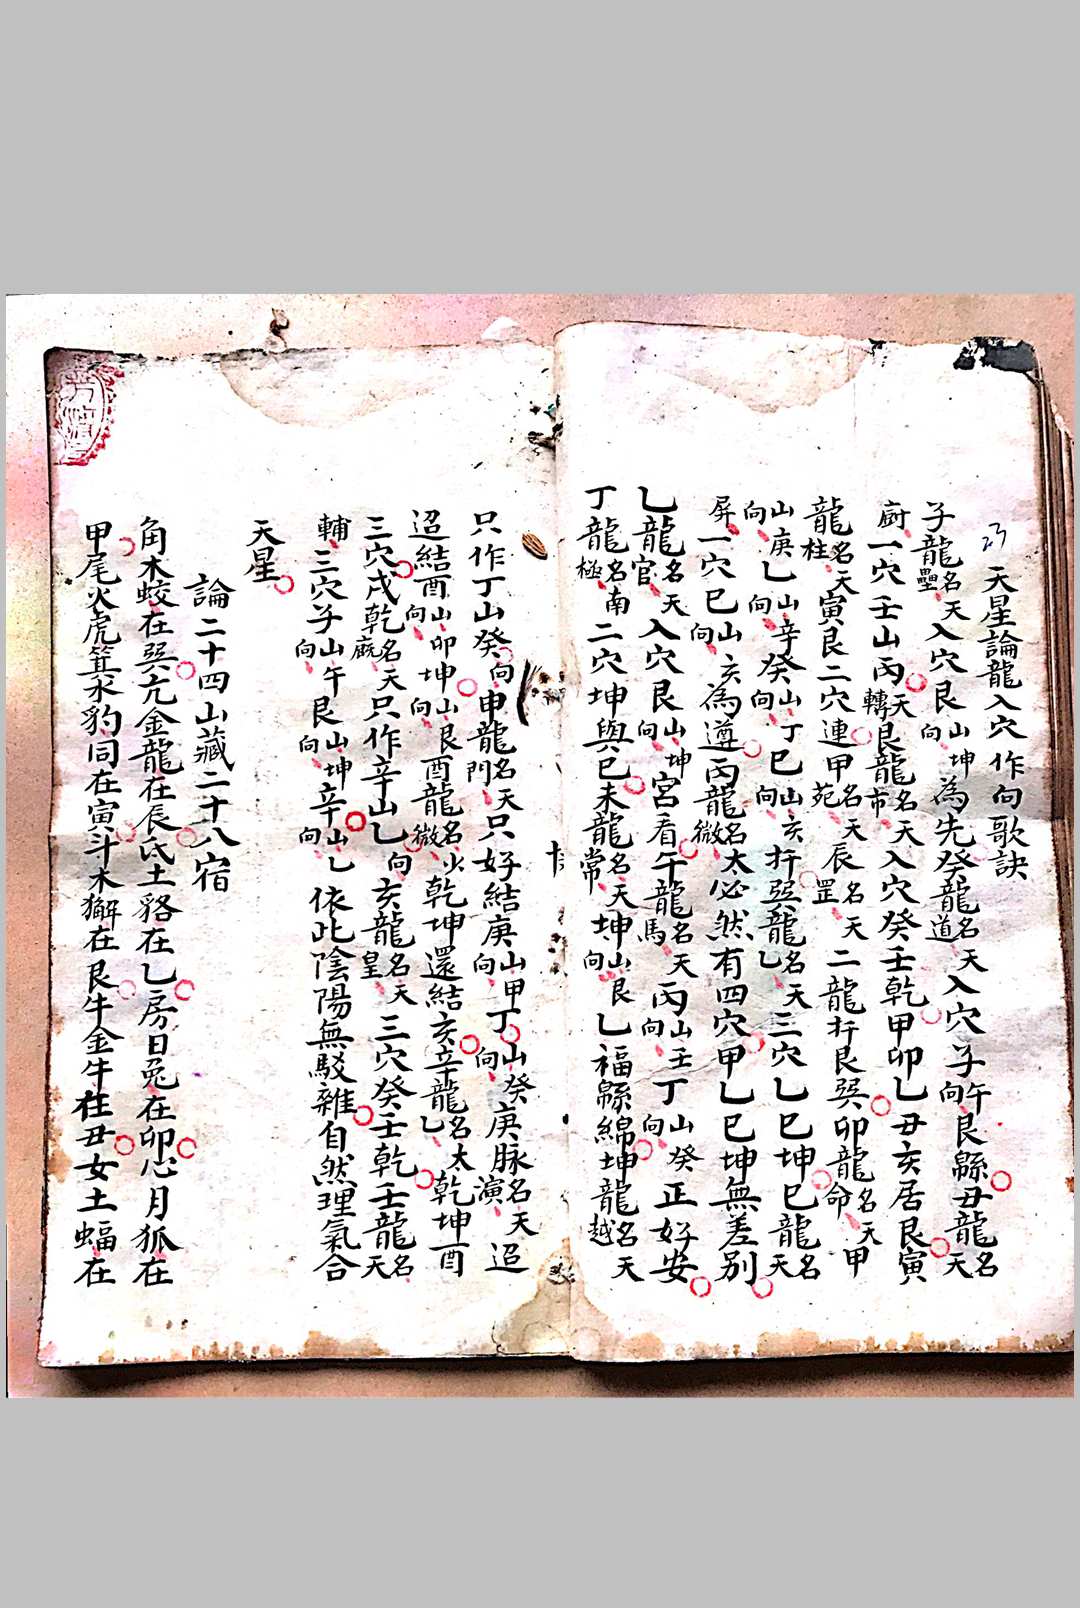 23 天星論龍入穴作向歌訣
子龍名天壘入穴艮山坤向為先癸龍名天道入穴子午向艮緜丑龍名天
厨一穴壬山丙轉艮龍名天市入穴癸壬乾甲卯乙丑亥居艮寅
龍名天柱寅艮二穴連甲名天苑辰名天罡二龍扦艮巽卯龍名天命甲
山庚向乙山辛向癸山丁向巳山亥向扦巽龍名天乙三穴乙巳坤巳龍名天
屏一穴巳山亥向為遵丙龍名太微必然有四穴甲乙巳坤無差别
乙龍名天官入穴艮山坤向宮看午龍名天馬丙山壬向丁山癸向正好安
丁龍名南極二穴坤與巳未龍名天常坤山艮向乙福緜綿坤龍名天越
只作丁山癸向申龍名天門只好結庚山甲向丁山癸向庚脉名天演迢
迢結酉山卯向坤山艮向酉龍名火微乾坤還結亥辛龍名太乙乾坤酉
三穴戌乾名天厩只作辛山乙向亥龍名天皇三穴癸壬乾壬龍名天
輔三穴子山午向艮山坤向辛山乙向依此陰陽無駁雜自然理氣合
天星
論二十四山藏二十八宿
角木蛟在巽亢金龍在辰氐土貉在乙房日兔在卯心月狐在
甲尾火虎箕水豹同在寅斗木獬在艮牛金牛在丑女土蝠在